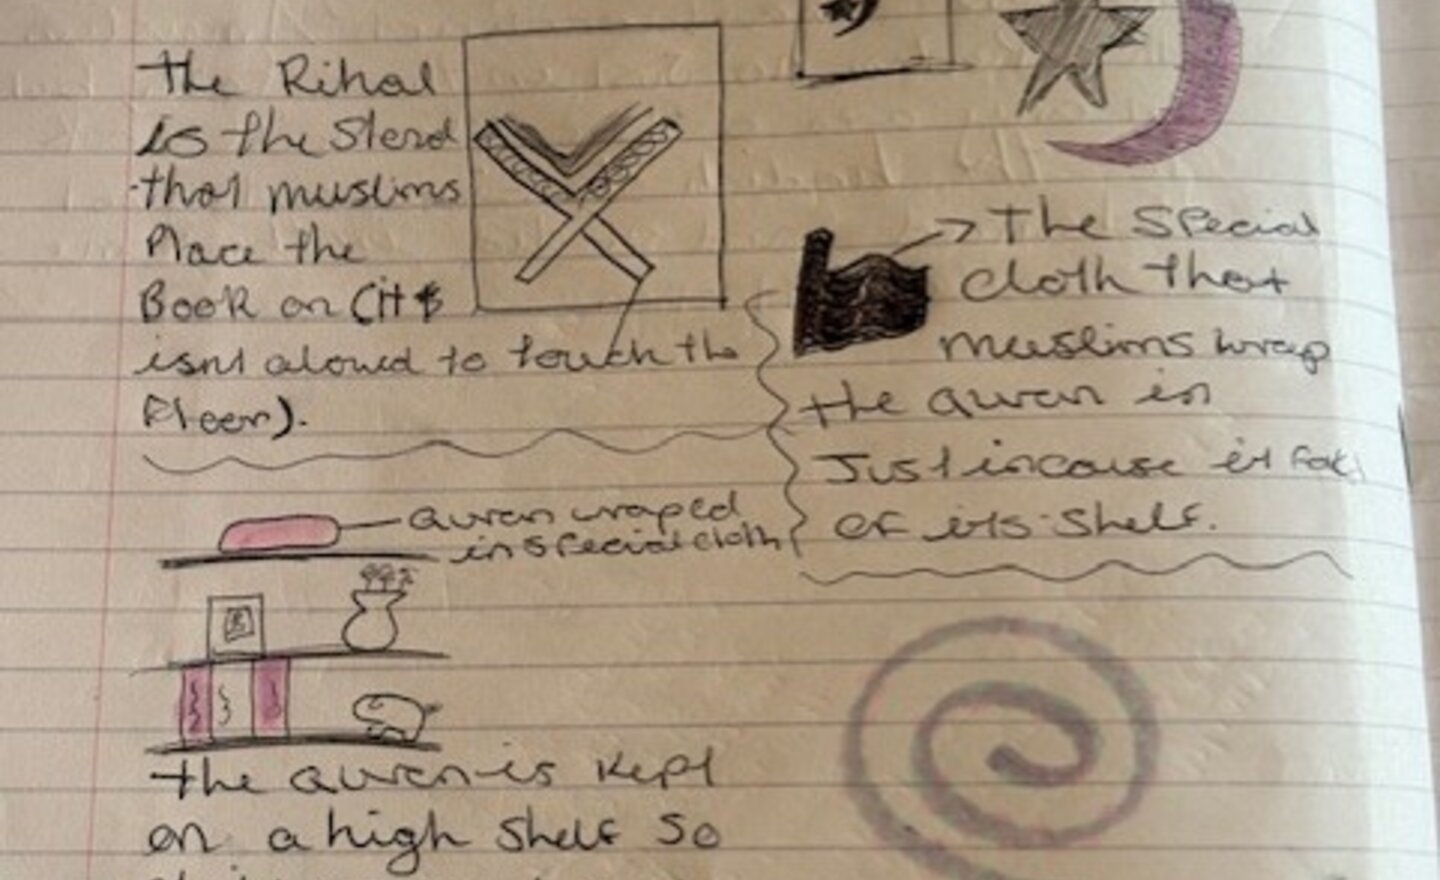 the Rihal
is the Stend
that muslims
Place the
Book on (it
isnt alowd to touch the
Floor).
The Special
cloth that
muslims wrap
the quran in
Just incause it fall
of its shelf.
quran wraped
in special cloth
the quran is kept
on a high shelf so